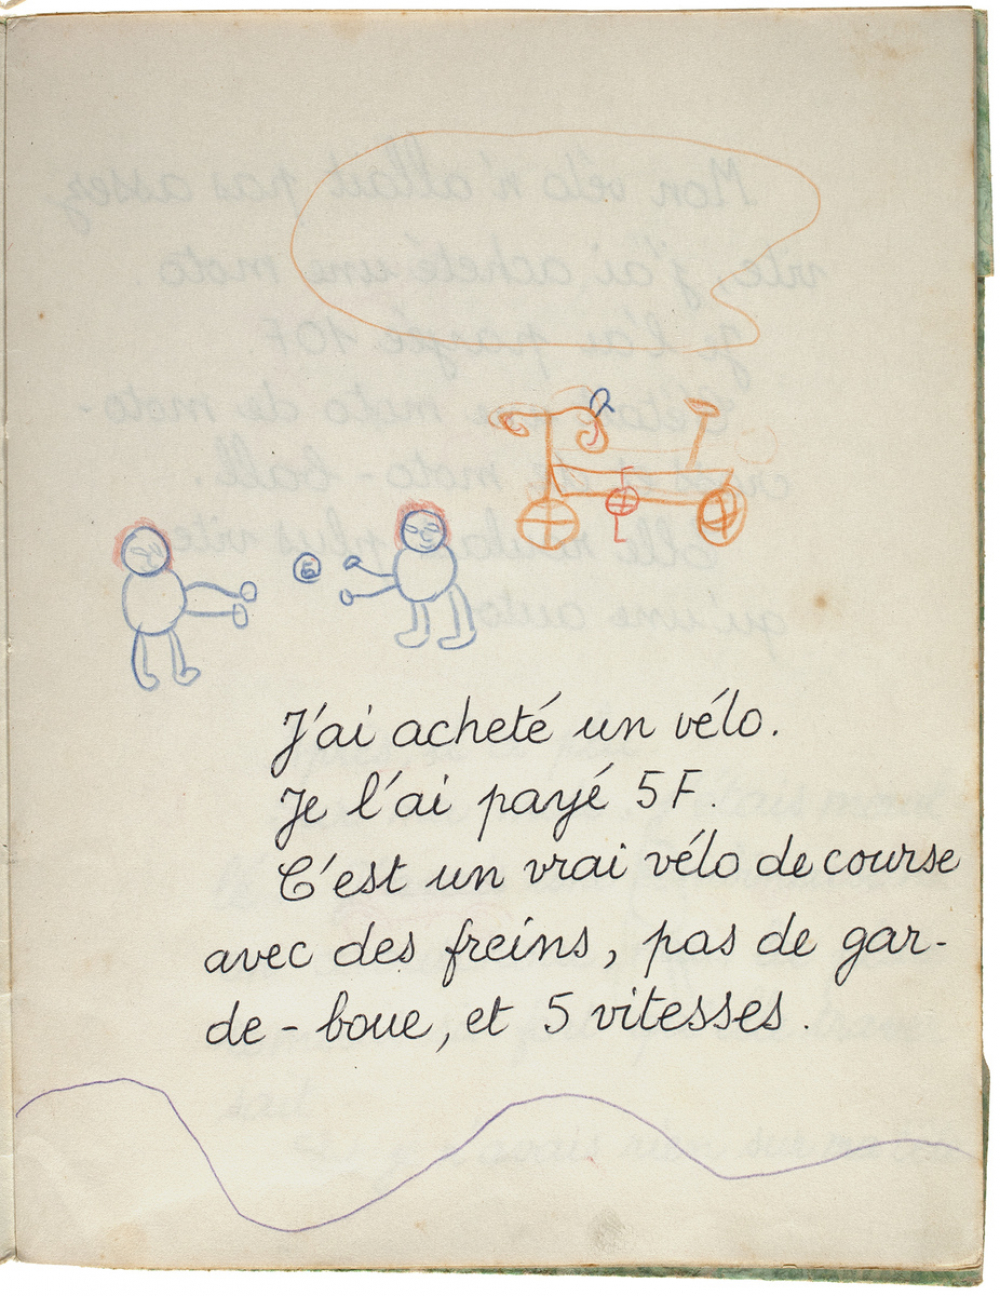 5
J'ai acheté un vélo.
Je l'ai payé 5F.
C'est un vrai vélo de course
avec des freins, pas de gar-
de-boue, et 5 vitesses.